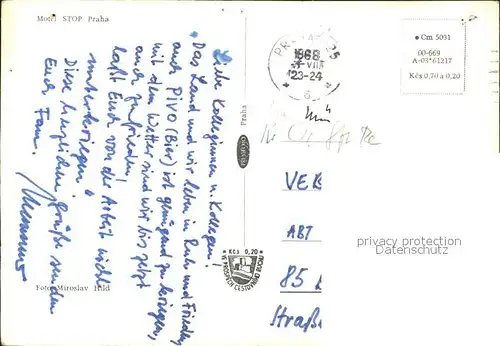 Motel STOP Praha
Liebe Kolleginnen u. Kollegen!
"Das Land und wir leben in Ruh und Frieden,
auch PIVO (Bier) ist genügend zu kriegen,
mit dem Wetter sind wir bis jetzt
auch zufrieden!
laßt Euch von der Arbeit nicht
unterkriegen!"
Diese herzlichen Grüße senden
Euch Fam.
Foto Miroslav Hild
Praha
PRESSFOTO
Kčs 0,20
VE PROSPĚCH CESTOVNÍHO RUCHU
PRAHA 025
1968
VIII
23-24
Cm 5031
00-669
A-03*61217
Kčs 0,70 a 0,20
VER
ABT
85
Straß
privacy protection
Datenschutz